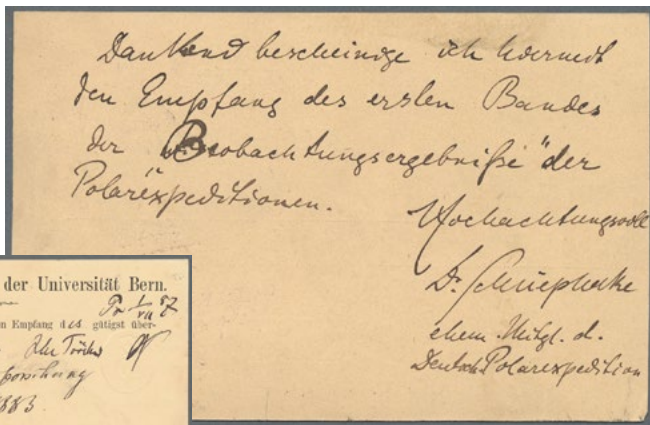 Dankend bescheinige ich hiermit
den Empfang des ersten Bandes
der „Beobachtungsergebniße“ der
Polarexpeditionen.
Hochachtungsvoll
Dr. Schliephake
ehem. Mitgl. d.
Deutsch. Polarexpedition
der Universität Bern.
n Empfang des gütigst über-
forschung
1883